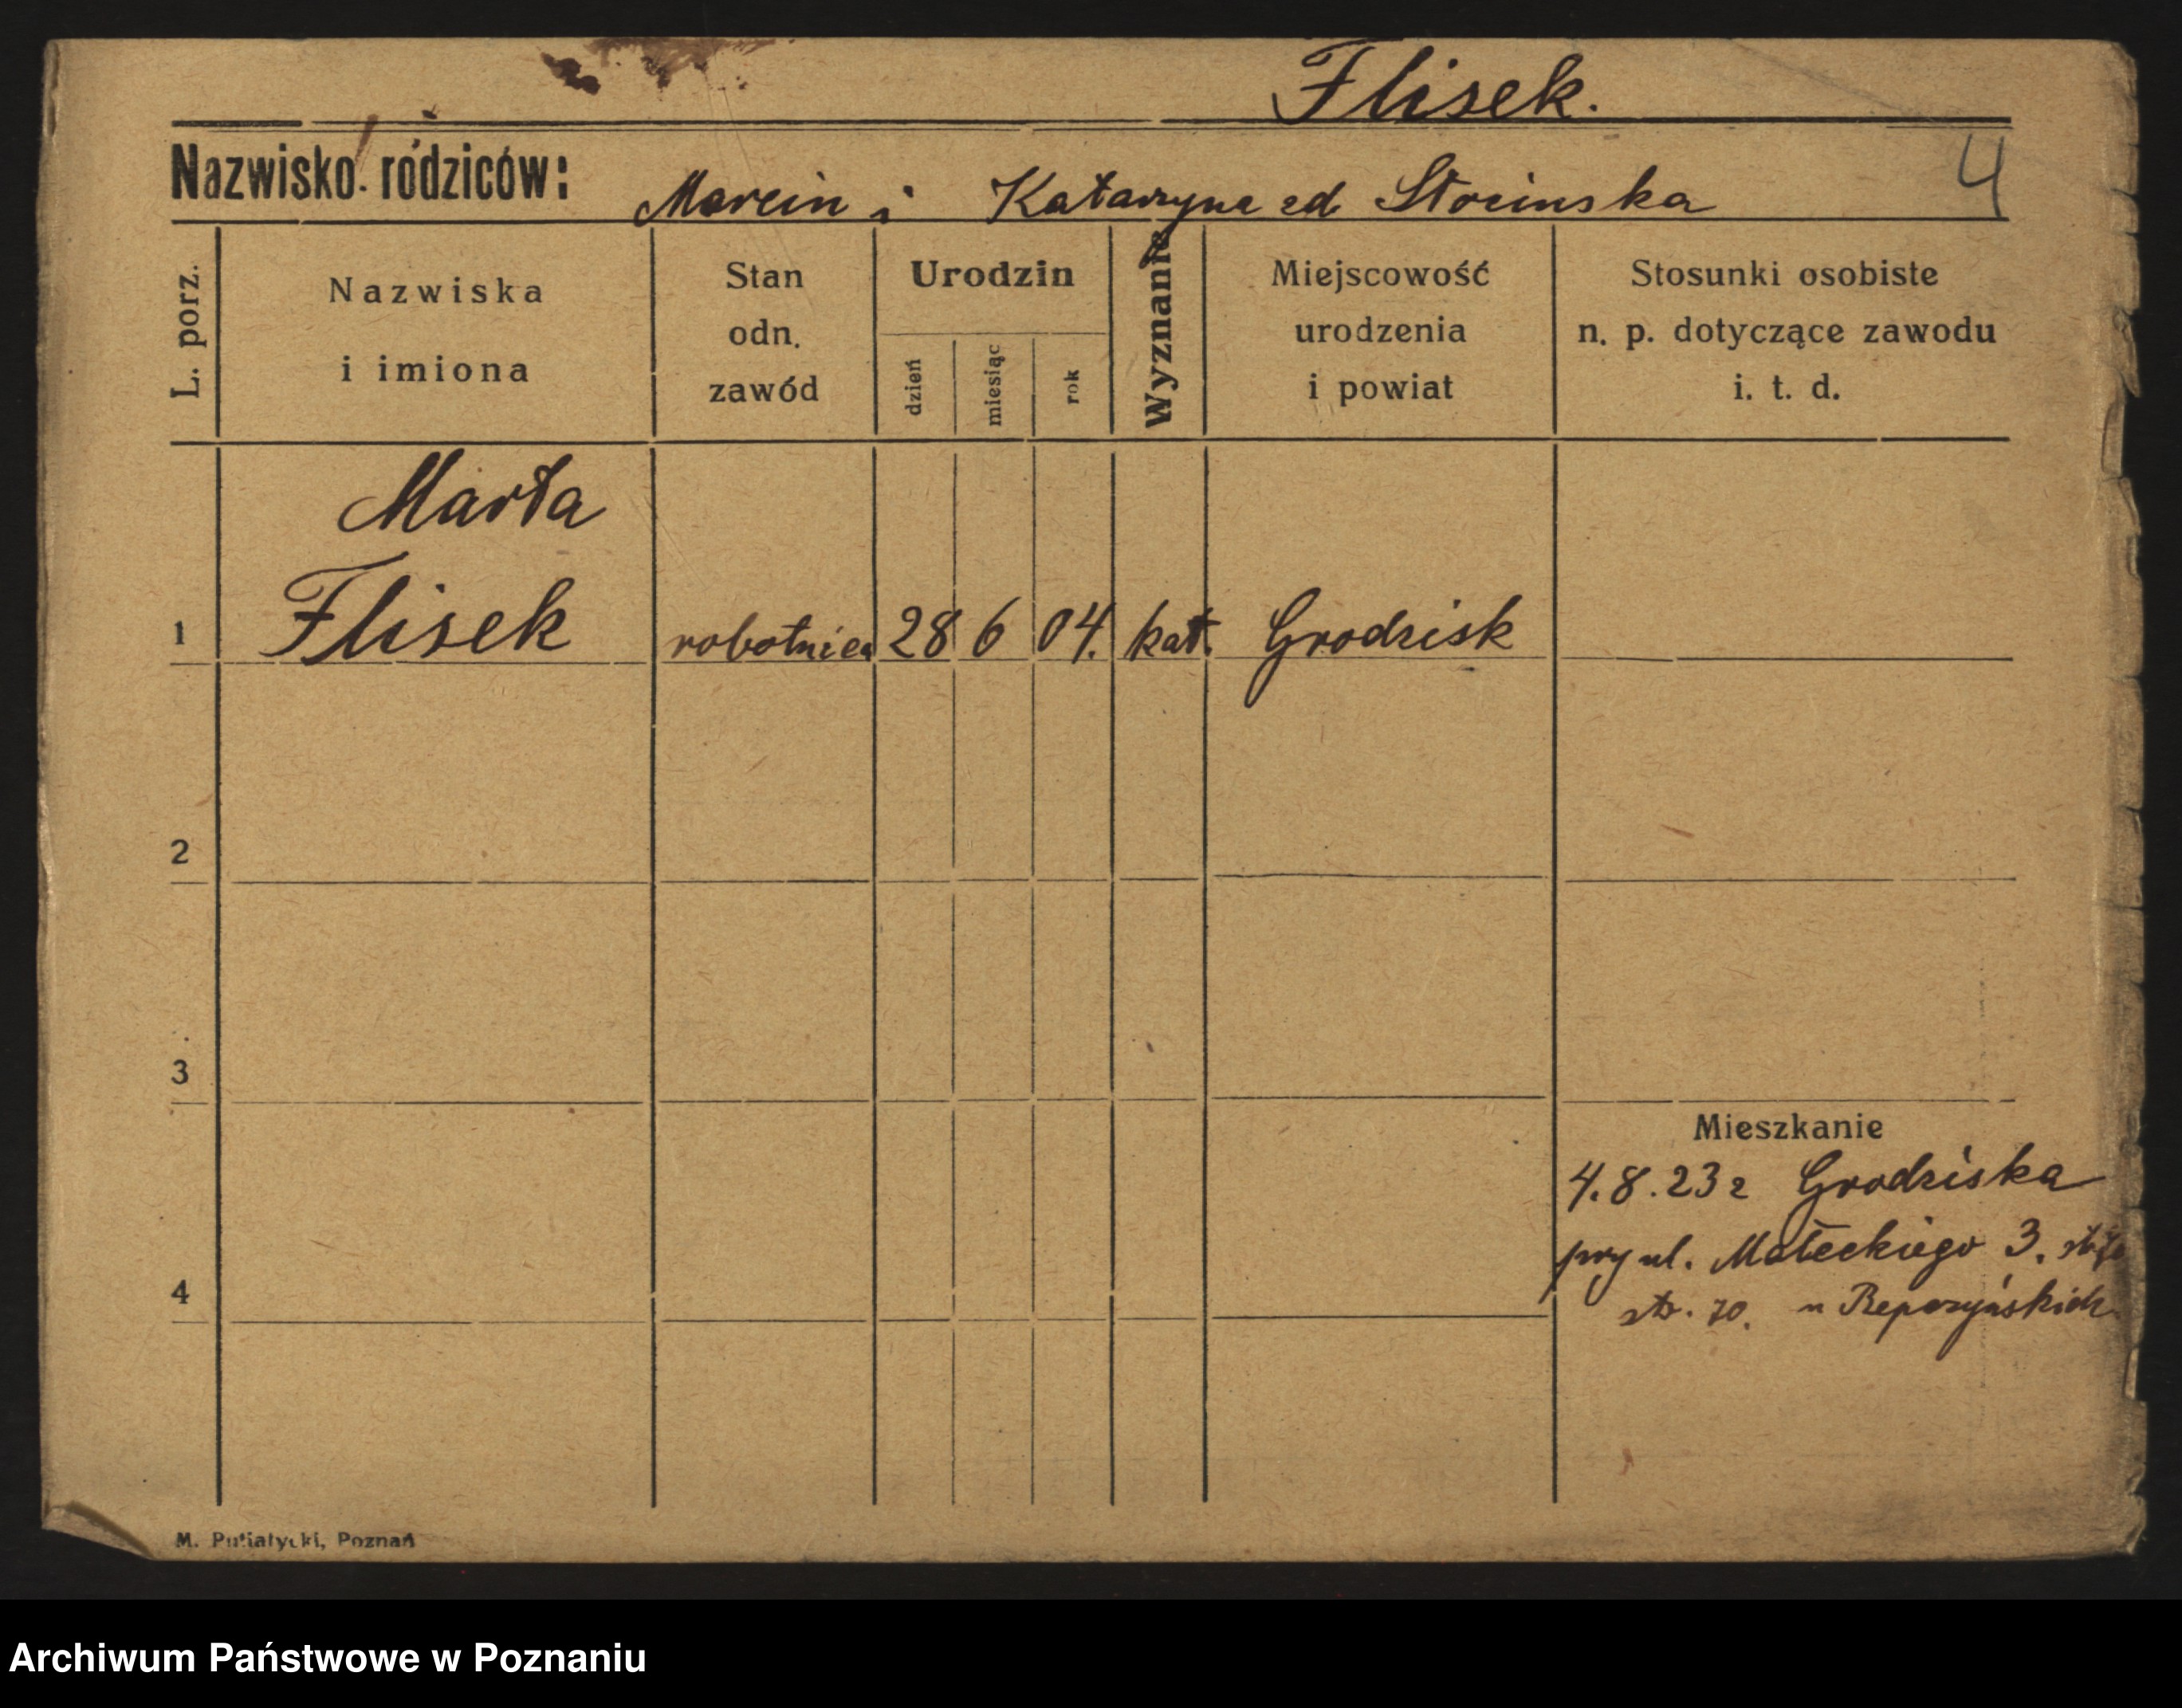 Flisek.
Nazwisko rodziców: Marcin i Katarzyna zd Stocinska
4
L. porz.
Nazwiska i imiona
Stan odn. zawód
Urodzin
dzień miesiąc rok
Wyznanie
Miejscowość urodzenia i powiat
Stosunki osobiste n. p. dotyczące zawodu i. t. d.
Marta
1 Flisek robotnica 28 6 04. kat. Grodzisk
2
3
Mieszkanie
4.8.23 z Grodziska
przy ul. Małeckiego 3.
4
str. 70. u Repczyńskich
M. Putiatycki, Poznań
Archiwum Państwowe w Poznaniu